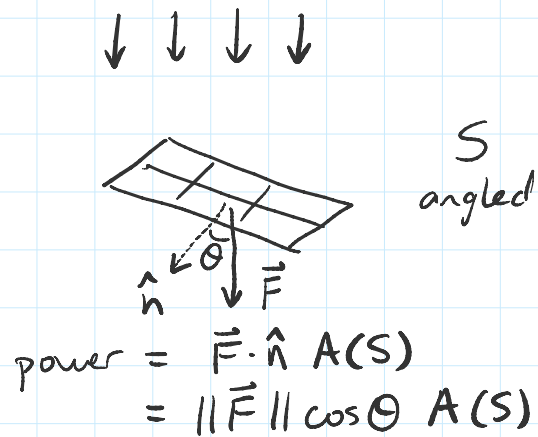 S
angled
θ
n̂
F⃗
power = F⃗ · n̂ A(S)
= ||F⃗|| cos θ A(S)